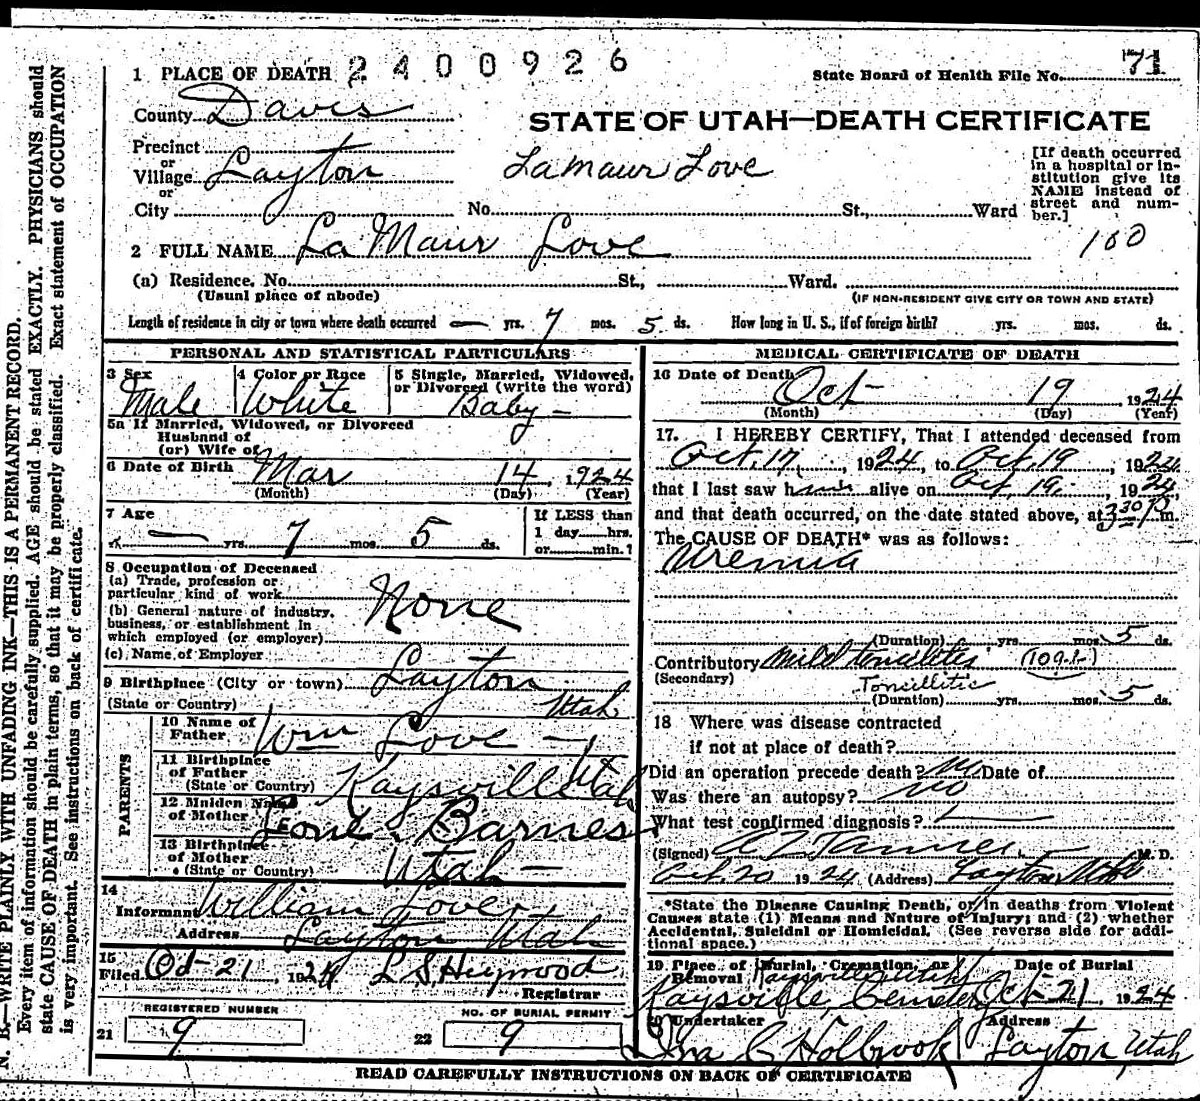 2400926
1 PLACE OF DEATH
State Board of Health File No. 71
County Davis
STATE OF UTAH—DEATH CERTIFICATE
Precinct
or
Village Layton
or
City
Lamaur Love
[If death occurred
in a hospital or in-
stitution give its
NAME instead of
street and num-
ber.]
No. St., Ward
100
2 FULL NAME La Maur Love
(a) Residence. No. St., Ward.
(Usual place of abode)
(IF NON-RESIDENT GIVE CITY OR TOWN AND STATE)
Length of residence in city or town where death occurred — yrs. 7 mos. 5 ds. How long in U. S., if of foreign birth? yrs. mos. ds.
PERSONAL AND STATISTICAL PARTICULARS
3 Sex
Male
4 Color or Race
White
5 Single, Married, Widowed,
or Divorced (write the word)
Baby —
5a If Married, Widowed, or Divorced
Husband of
(or) Wife of
6 Date of Birth
Mar 14, 1924
(Month) (Day) (Year)
7 Age
— yrs. 7 mos. 5 ds.
If LESS than
1 day hrs.
or min.?
8 Occupation of Deceased
(a) Trade, profession or
particular kind of work
None
(b) General nature of industry,
business, or establishment in
which employed (or employer)
(c) Name of Employer
9 Birthplace (City or town) Layton
(State or Country) Utah
PARENTS
10 Name of
Father Wm Love —
11 Birthplace
of Father
(State or Country) Kaysville Utah
12 Maiden Name
of Mother Barnes
13 Birthplace
of Mother
(State or Country) Utah —
14
Informant William Love
Address Layton Utah
15
Filed Oct-21, 1924 L S Heywood
Registrar
REGISTERED NUMBER
21 9
NO. OF BURIAL PERMIT
22 9
MEDICAL CERTIFICATE OF DEATH
16 Date of Death Oct 19 1924
(Month) (Day) (Year)
17. I HEREBY CERTIFY, That I attended deceased from
Oct. 17, 1924, to Oct. 19, 1924
that I last saw h alive on Oct. 19, 1924,
and that death occurred, on the date stated above, at 3 30 P. m.
The CAUSE OF DEATH* was as follows:
Uremia
(Duration) yrs. mos. 5 ds.
Contributory Mild tonsilites
(Secondary)
Tonsillitis
(Duration) yrs. mos. 5 ds.
18 Where was disease contracted
if not at place of death?
Did an operation precede death? no Date of
Was there an autopsy? no
What test confirmed diagnosis?
(Signed) A Z Tanner M. D.
Oct. 20 1924 (Address) Layton Utah
*State the Disease Causing Death, or in deaths from Violent
Causes state (1) Means and Nature of Injury; and (2) whether
Accidental, Suicidal or Homicidal. (See reverse side for addi-
tional space.)
19 Place of Burial, Cremation, or
Removal Kaysville Utah
Kaysville, Cemetery
Date of Burial
Oct-21, 1924
20 Undertaker
Ira C Holbrook
Address
Layton, Utah
READ CAREFULLY INSTRUCTIONS ON BACK OF CERTIFICATE
N. B.—WRITE PLAINLY WITH UNFADING INK—THIS IS A PERMANENT RECORD.
Every item of information should be carefully supplied. AGE should be stated EXACTLY. PHYSICIANS should
state CAUSE OF DEATH in plain terms, so that it may be properly classified. Exact statement of OCCUPATION
is very important. See instructions on back of certificate.